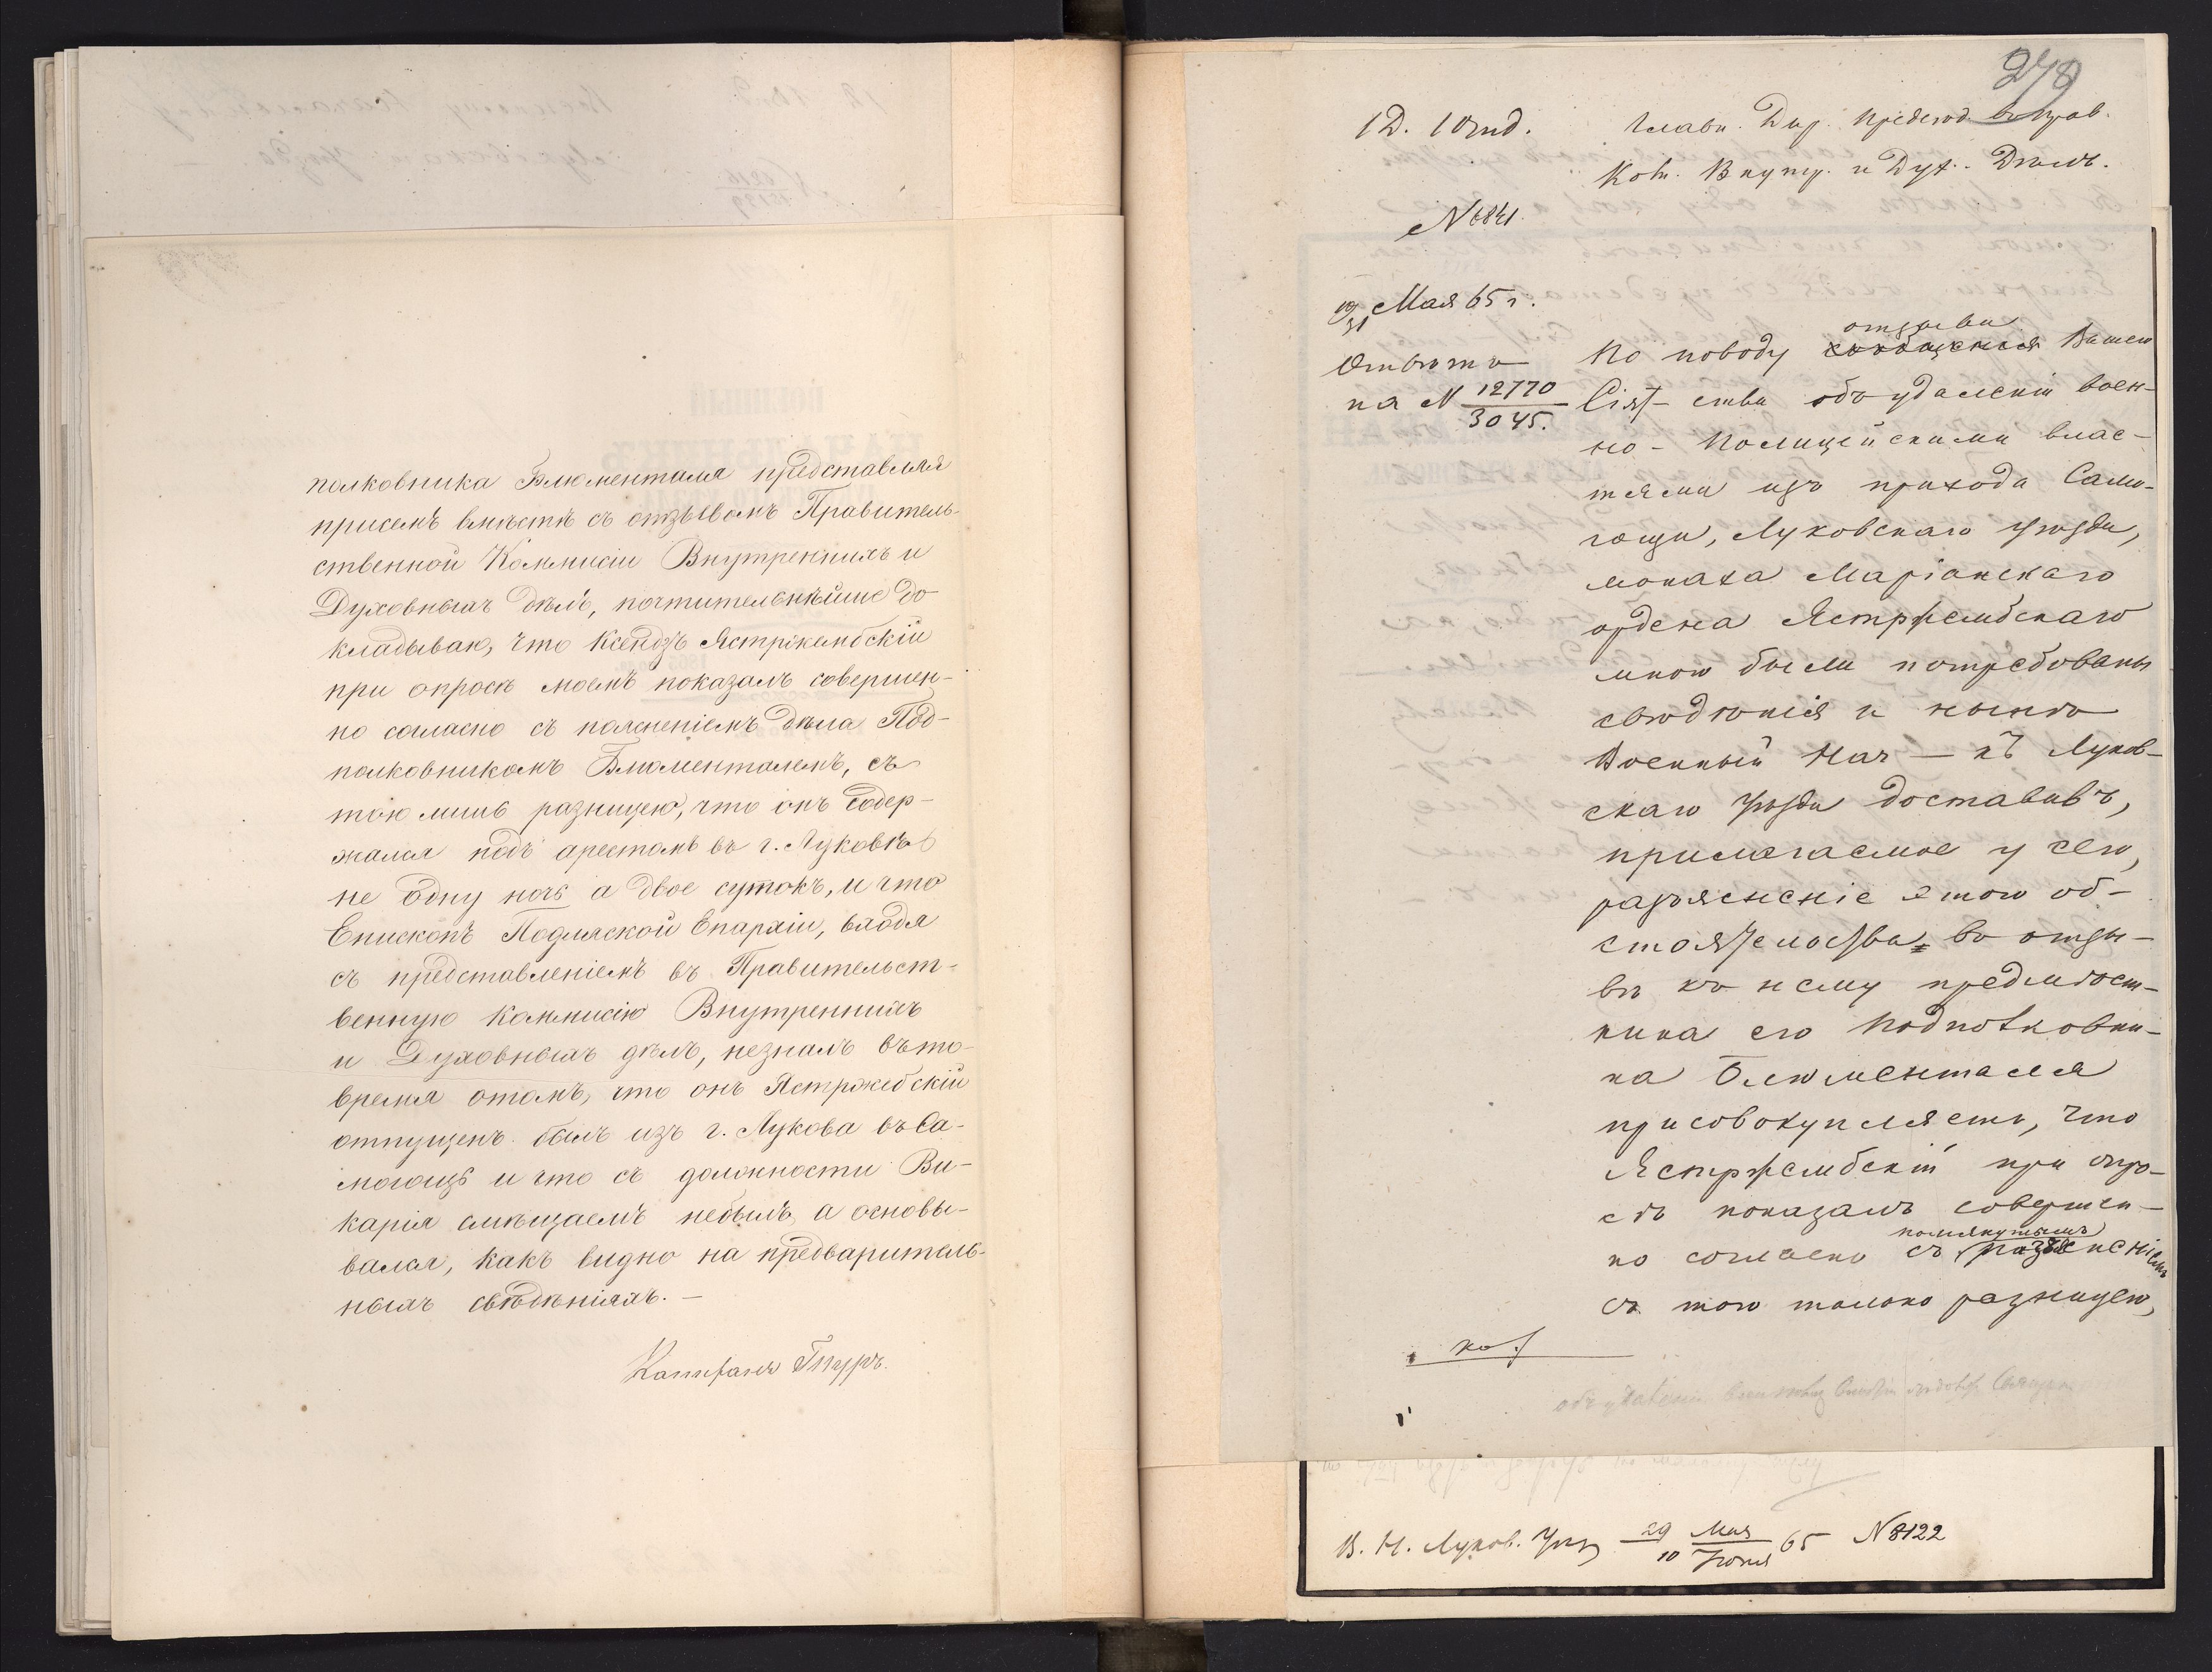 полковника Блюменталя представляя
присемъ вмѣстѣ съ отзывомъ Правитель-
ственной Коммисіи Внутреннихъ и
Духовныхъ дѣлъ, почтительнѣйше до
кладываю, что Ксендзъ Ястржембскій
при опросѣ моемъ показалъ совершен-
но согласно съ поясненіемъ дѣла Под-
полковникомъ Блюменталемъ, съ
тою лишь разницею, что онъ содер-
жался подъ арестомъ въ г. Луковѣ
не одну ночь а двое сутокъ, и что
Епископъ Подляской Епархіи, входя
съ представленіемъ въ Правительст-
венную Коммисію Внутреннихъ
и Духовныхъ дѣлъ, незналъ въ то
время отомъ, что онъ Ястржебскій
отпущенъ былъ изъ г. Лукова въ Са-
могощъ и что съ должности Ви-
карія смѣщаемъ небылъ, а основы-
вался, какъ видно на предваритель-
ныхъ свѣдѣніяхъ. —
Капитанъ
278
1 Д. 1 Отд.
Главн. Дир. Предсѣд. въ Прав.
Ком. Внутр. и Дух. Дѣлъ.
№ 6841.
19/31 Мая 65 г.
Отвѣтъ
на № 12770/3045.
отзыва
По поводу сообщенія Вашего
Сіят-ства объ удаленіи воен-
но-Полицейскими влас-
тями изъ прихода Само-
гощи, Луковскаго Уѣзда,
монаха Маріанскаго
ордена Ястржембскаго
мною были потребованы
свѣдѣнія и нынѣ
Военный Нач—къ Луков-
скаго Уѣзда доставивъ,
прилагаемое у сего,
разъясненіе этого об-
стоятельства, въ отзы-
вѣ къ нему предмѣст-
ника его Подполковни-
ка Блюменталя
присовокупляетъ, что
Ястржембскій при опро-
сѣ показалъ совершен-
помянутымъ
но согласно съ разъясненіемъ
съ тою только разницею,
В. Н. Луков. Уѣз. 29 Мая/10 Іюня 65 № 8122